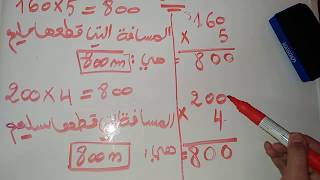 160×5=800
المسافة التي قطعها سليم
هي: 800m
200×4=800
المسافة التي قطعها سليم
هي: 800m
160
× 5
= 800
200
× 4
= 800